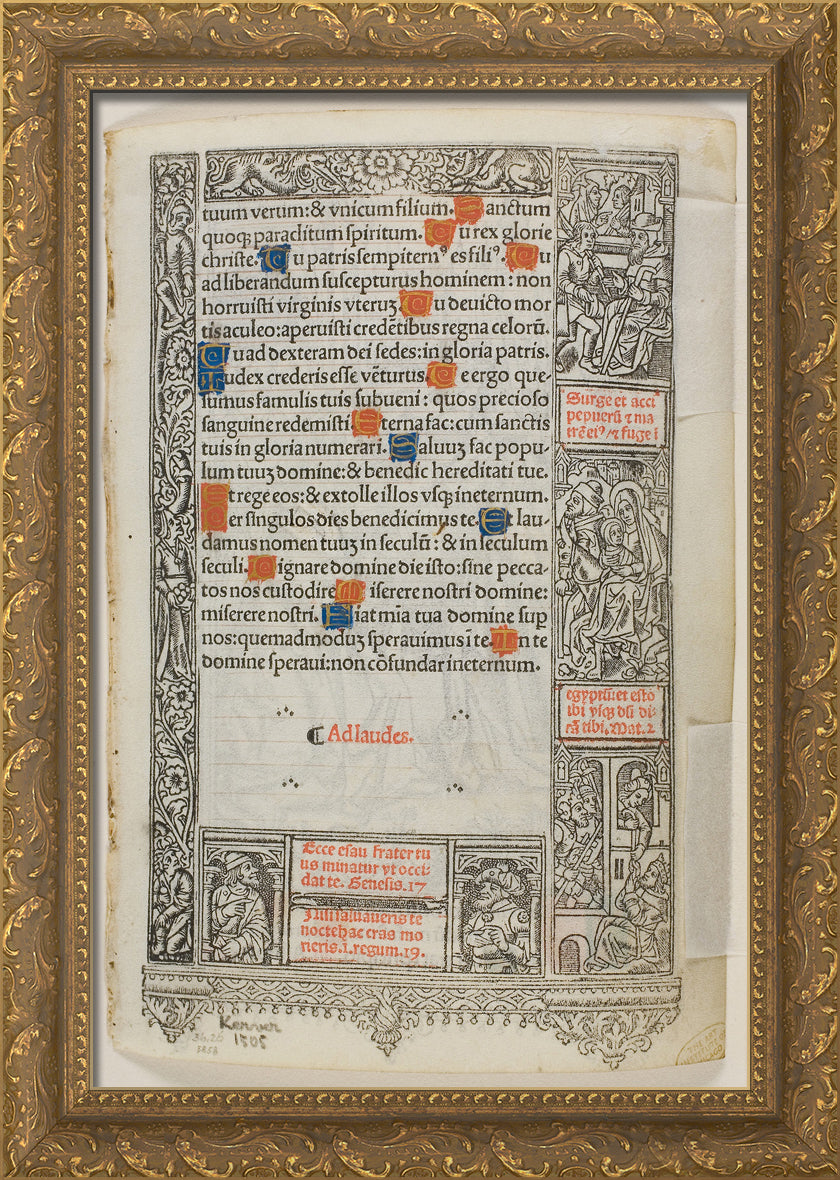 tuum verum:& vnicum filium. Sanctum
quoqꝫ paraclitum spiritum. Tu rex glorie
christe. Tu patris sempitern⁹ es fili⁹. Tu
ad liberandum suscepturus hominem: non
horruisti virginis vteruʒ. Tu deuicto mor
tis aculeo: aperuisti credētibus regna celorū.
Tu ad dexteram dei sedes: in gloria patris.
Iudex crederis esse vēturus. Te ergo que-
sumus famulis tuis subueni: quos precioso
sanguine redemisti. Eterna fac: cum sanctis
tuis in gloria numerari. Saluuʒ fac popu-
lum tuuʒ domine:& benedic hereditati tue.
Et rege eos:& extolle illos vsqꝫ ineternum.
Per singulos dies benedicimus te. Et lau-
damus nomen tuuʒ in seculū: & in seculum
seculi. Dignare domine die isto: sine pecca-
to nos custodire. Miserere nostri domine:
miserere nostri. Fiat mīa tua domine sup
nos: quemadmoduʒ sperauimus ī te. In te
domine speraui: non cōfundar ineternum.
Ad laudes.
Surge et acci
pe puerū ⁊ ma
trē ei⁹ ⁊ fuge ī
egyptū: et esto
ibi vsqꝫ dū di-
cā tibi. Mat. 2
Ecce esau frater tu
us minatur vt occi-
dat te. Genesis. 17
Nisi saluaueris te
nocte hac cras mo
rieris. 1. regum. 19.
Kerver
1505